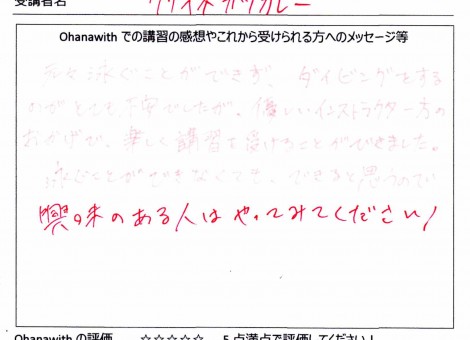 受講者名 クリイネカツカレー
Ohanawith での講習の感想やこれから受けられる方へのメッセージ等
元々泳ぐことができず、ダイビングをするのがとても不安でしたが、優しいインストラクター方の
おかげで、楽しく講習を受けることができました。
泳ぐことができなくても、できると思うので
興味のある人はやってみてください!
Ohanawith の評価 ☆☆☆☆☆ 5 点満点で評価してください!